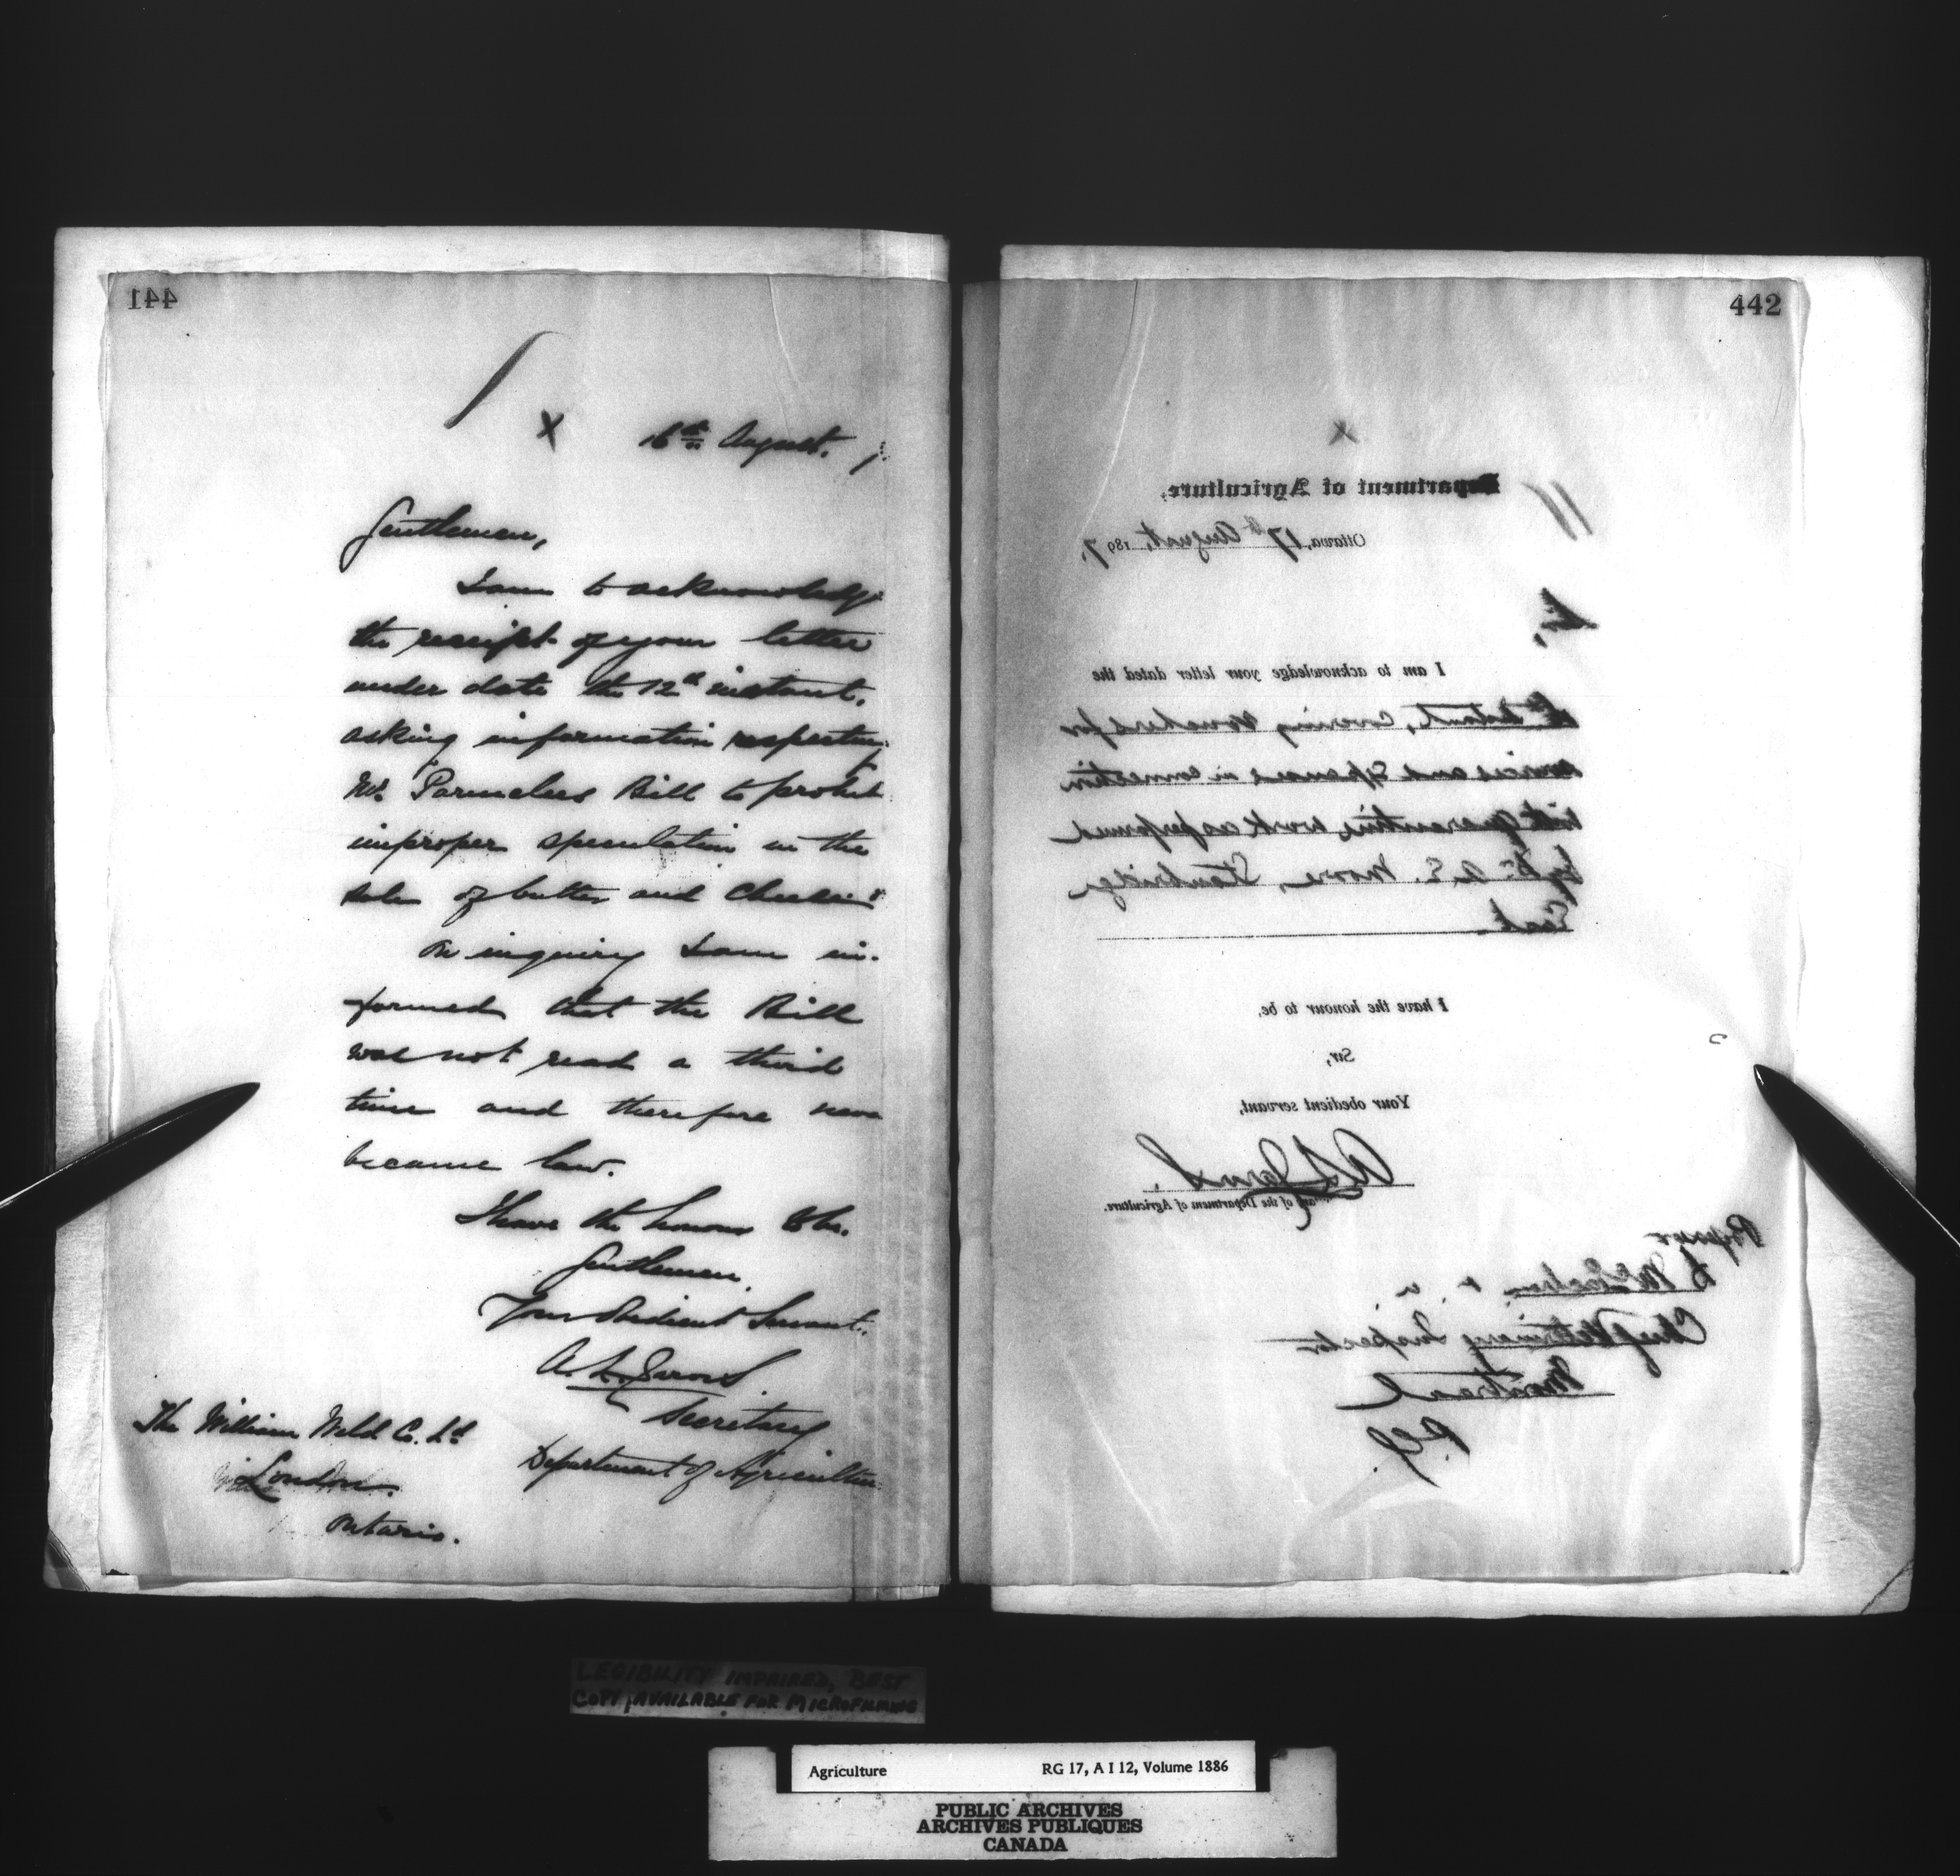 441
16th August.
Gentlemen,
I am to acknowledge
the receipt of your letter
under date the 12th instant,
asking information respecting
Mr. Parmelees Bill to prohibit
improper speculation in the
sale of butter and cheese
On inquiry I am in-
formed that the Bill
was not read a third
time and therefore never
became law.
I have the honour to be.
Gentlemen,
Your Obedient Servant.
A. L. Jarvis
Secretary
Department of Agriculture
The William Weld Co. Ld
London.
Ontario.
442
Department of Agriculture,
Ottawa, 17th August, 1897.
Sir,
I am to acknowledge your letter dated the
instant, covering vouchers for
services and expenses in connection
with quarantine work as performed
by Dr. A. E. Moore, Stanbridge
East.
I have the honour to be,
Sir,
Your obedient servant,
A L Jarvis
Secretary of the Department of Agriculture.
Professor
D McEachran
Chief Veterinary Inspector
Montreal
P.Q.
LEGIBILITY IMPAIRED, BEST
COPY AVAILABLE FOR MICROFILMING
Agriculture RG 17, A I 12, Volume 1886
PUBLIC ARCHIVES
ARCHIVES PUBLIQUES
CANADA